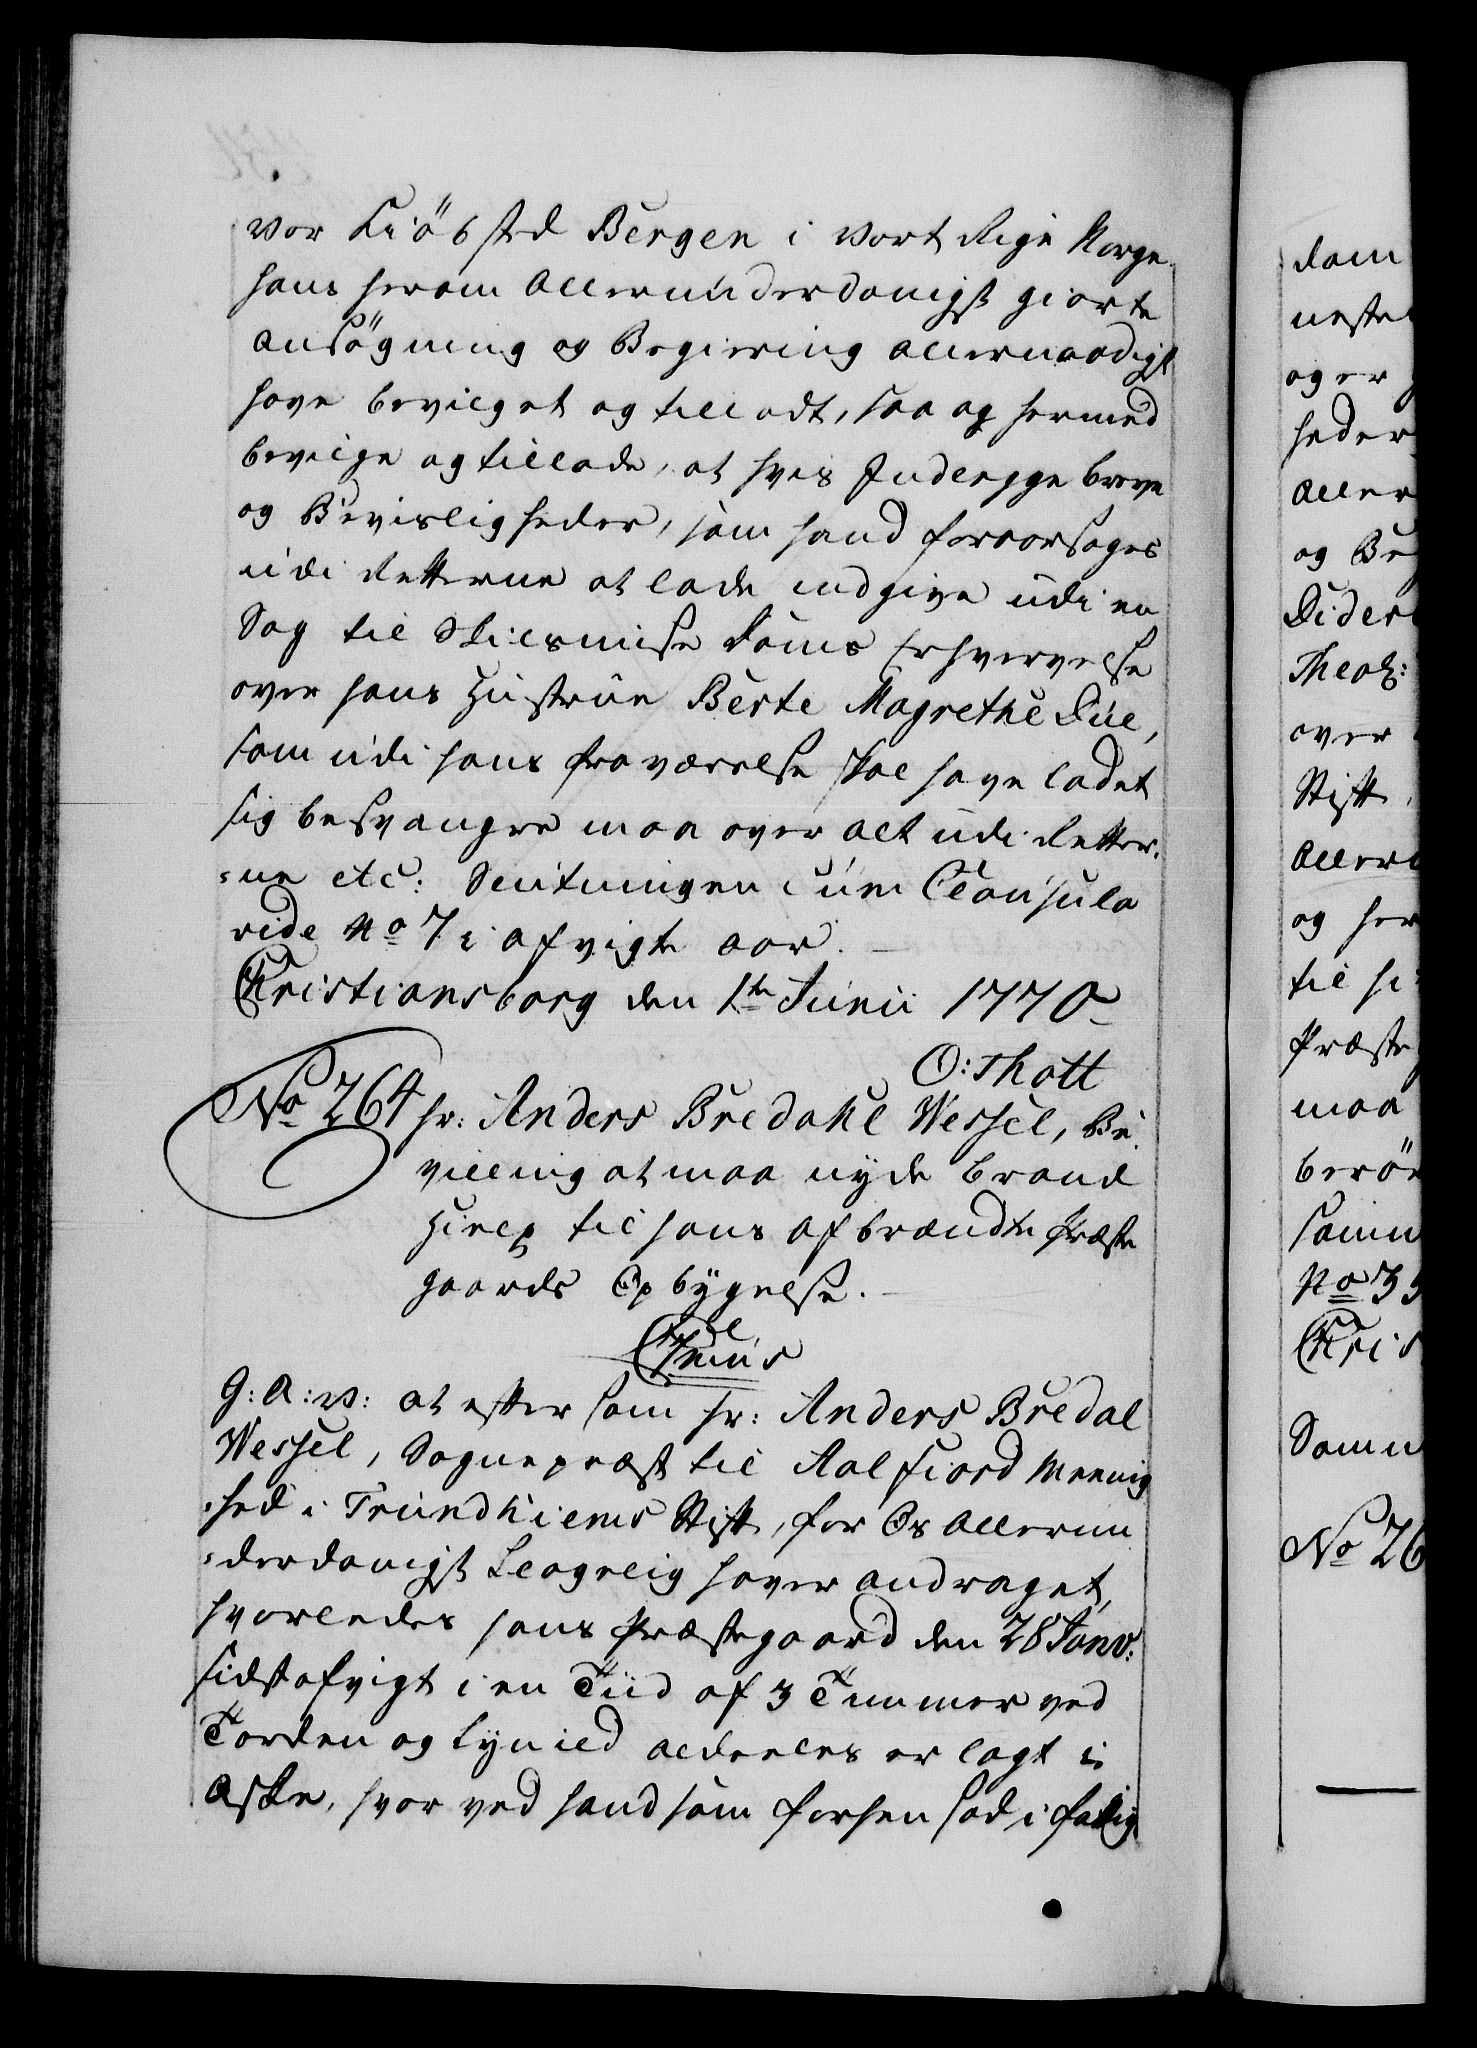 vor Kiöbsted Bergen i vort Rige Norge
hans herom allerunderdanigst giorte
ansögning og Begiering allernaadigst
have bevilget og tilladt, saa og hermed
bevilge og tillade, at hvis Indlegge breve
og Bevisligheder, som hand foraarsages
udi Retterne at lade indgive udi en
Sag til Skilsmisse Doms Erhvervelse
over hans Hustrue Berte Magrethe Due,
som udi hans fraværelse skal have ladet
sig besvangre maa over alt udi Retter,
=ne etc: Slutningen cum Clausula
vide No 7 i afvigte aar.
Christiansborg den 1te Junii 1770
O: Thott
No 264 hr: Anders Bredahl Wessel, Be
villing at maa nyde brand
Hielp til hans afbrændte Præste
gaards Opbÿgelse.
C 7mus
G: A: v: at efftersom hr: Anders Bredal
Wessel, Sognepræst til Aalfiord Meenig
=hed i Trundhiems Stift, for Os allerun
=derdanigst klagelig haver andraget,
hvorledes hans Præstegaard den 28 Janv:
sidst afvigt i en Tiid af 3 Timmer ved
Torden og Lynild aldeeles er lagt i
Aske, hvor ved hand som forhen sad i fattig
dom
neste
og er
heder
aller
og Be
Dider
Theol:
over
Stift
aller
og her
til si
Præste
maa
berö
samm
No 39
Chris
Samm
No 26